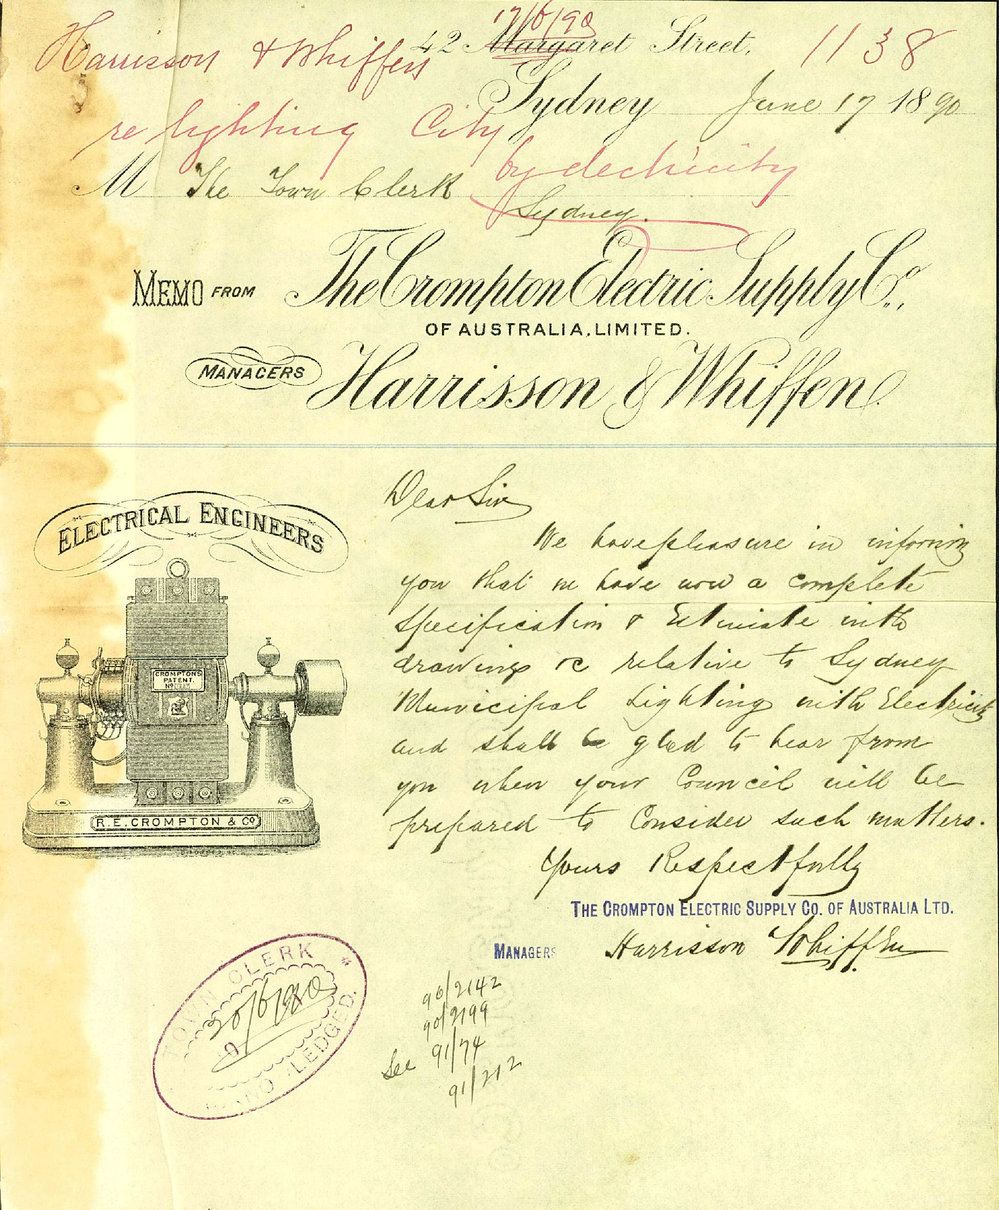 17/6/90
Harrisson & Whiffen 42 Margaret Street. 1138
Sydney June 17 1890
re lighting City
by electricity
M The Town Clerk
Sydney.
MEMO FROM The Crompton Electric Supply Co.,
OF AUSTRALIA, LIMITED.
MANAGERS Harrisson & Whiffen.
ELECTRICAL ENGINEERS
CROMPTONS
PATENT.
R.E. CROMPTON & CO
Dear Sir
We have pleasure in informing
you that we have now a complete
Specification & Estimate with
drawings &c relative to Sydney
Municipal Lighting with Electricity
and shall be glad to hear from
you when your Council will be
prepared to Consider such matters.
Yours Respectfully
THE CROMPTON ELECTRIC SUPPLY CO. OF AUSTRALIA LTD.
MANAGERS Harrisson Whiffen
TOWN CLERK
20/6/1890
90/2142
90/2199
See 91/74
91/212